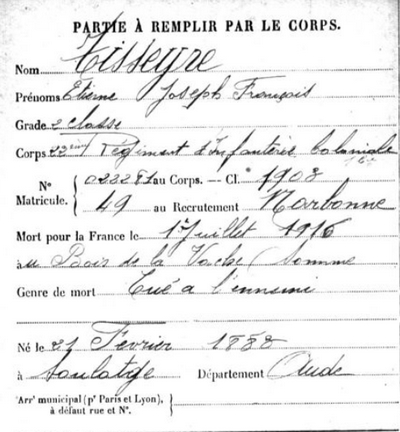 PARTIE À REMPLIR PAR LE CORPS.
Nom Tisseyre
Prénoms Etienne Joseph François
Grade 2 classe
Corps 22ème Régiment d'Infanterie Coloniale
N° Matricule. { 022281 au Corps. — Cl. 1908
49 au Recrutement Narbonne
Mort pour la France le 1 Juillet 1916
au Bois de la Vache (Somme
Genre de mort Tué a l'ennemi
Né le 21 Février 1888
à Soulatge Département Aude
Arr' municipal (p' Paris et Lyon),
à défaut rue et N°.